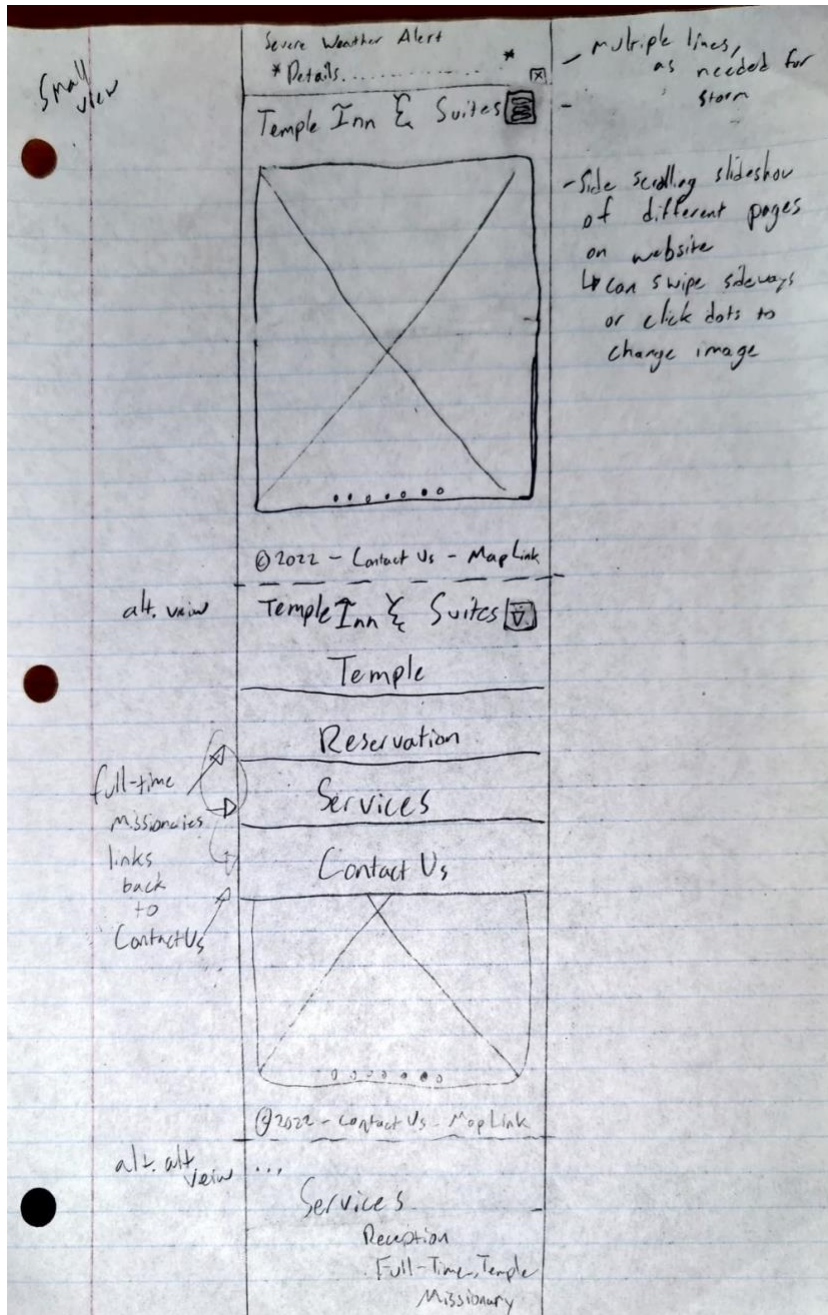 Small
view
Severe Weather Alert
* Details.................... *
x
- multiple lines,
as needed for
storm
-
Temple Inn & Suites
- Side scrolling slideshow
of different pages
on website
↳ can swipe sideways
or click dots to
change image
©2022 - Contact Us - Map Link
alt. veiw
Temple Inn & Suites
Temple
Reservation
Services
Contact Us
full-time
missionaries
links
back
to
Contact Us
©2022 - Contact Us - Map Link
alt. alt
veiw
...
Services
Reception
Full-Time, Temple
Missionary